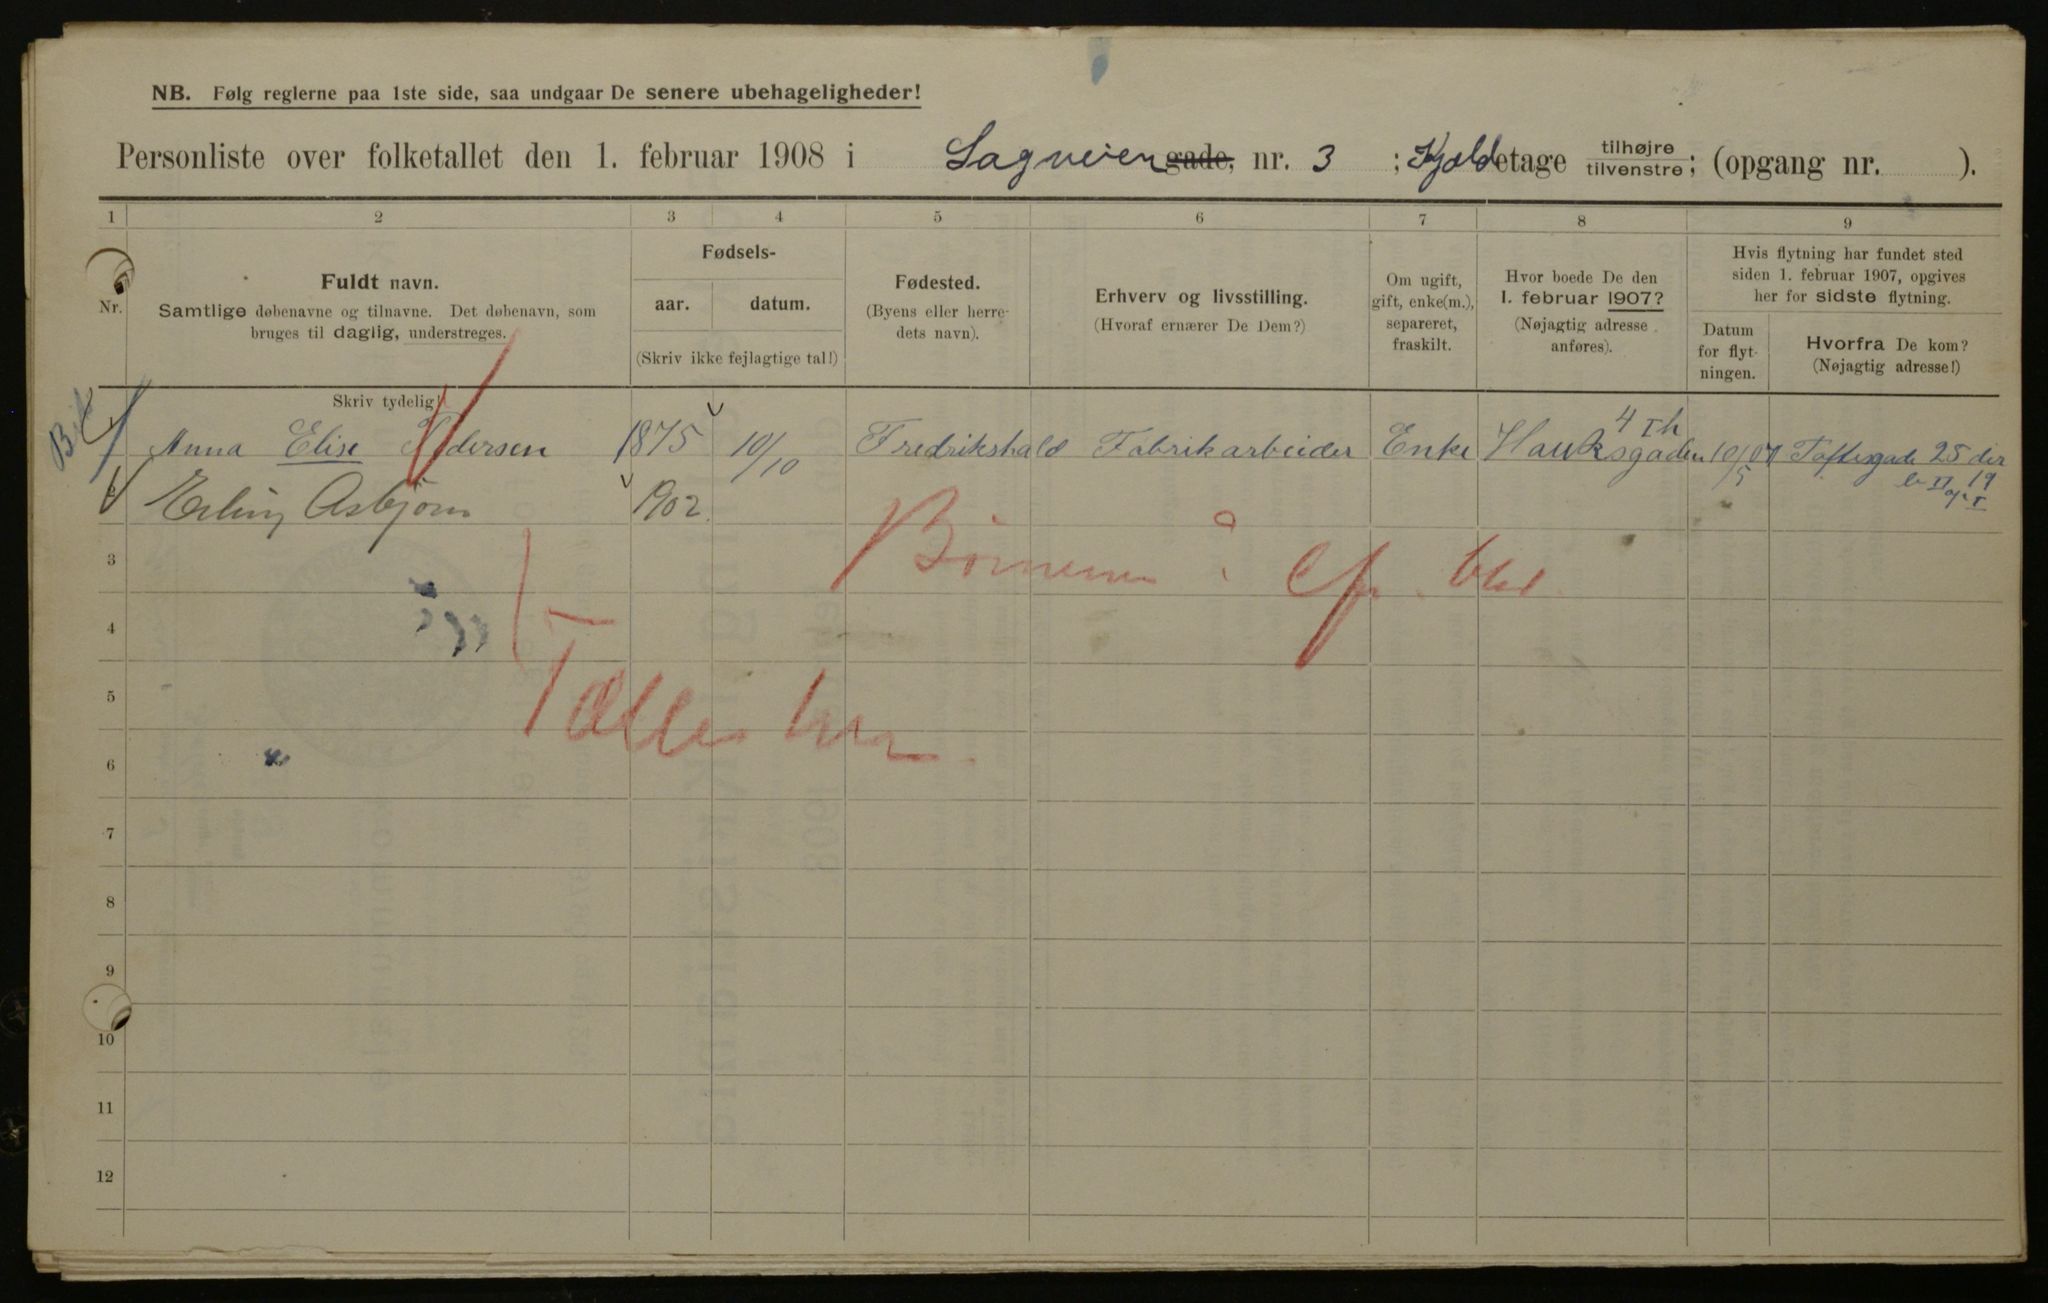 NB. Følg reglerne paa 1ste side, saa undgaar De senere ubehageligheder!
Personliste over folketallet den 1. februar 1908 i Sagveien gade, nr. 3 ; Kjeld etage tilhøjre tilvenstre; (opgang nr. ).
1 2 3 4 5 6 7 8 9
Nr.
Fuldt navn.
Samtlige døbenavne og tilnavne. Det døbenavn, som
bruges til daglig, understreges.
Skriv tydelig!
Fødsels-
aar. datum.
(Skriv ikke fejlagtige tal!)
Fødested.
(Byens eller herre-
dets navn).
Erhverv og livsstilling.
(Hvoraf ernærer De Dem?)
Om ugift,
gift, enke(m.),
separeret,
fraskilt.
Hvor boede De den
1. februar 1907?
(Nøjagtig adresse
anføres).
Hvis flytning har fundet sted
siden 1. februar 1907, opgives
her for sidste flytning.
Datum
for flyt-
ningen.
Hvorfra De kom?
(Nøjagtig adresse!)
Anna Elise Pedersen 1875 10/10 Fredrikshald Fabrikarbeider Enke Hauksgaden 4 I h 10/5 07 Toftesgade 25
2 Erling Asbjørn 1902
3
4
5
6
7
8
9
10
11
12
Børnene i
Tælles her.